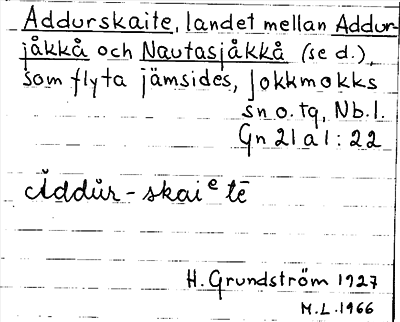 Addurskaite, landet mellan Addur-
jåkkå och Nautasjåkkå (se d.),
som flyta jämsides, Jokkmokks
sn o. tg, Nb.l.
Gn 21 a 1:22
ăddŭr-skaiᵉtē
H. Grundström 1927
M.L. 1966